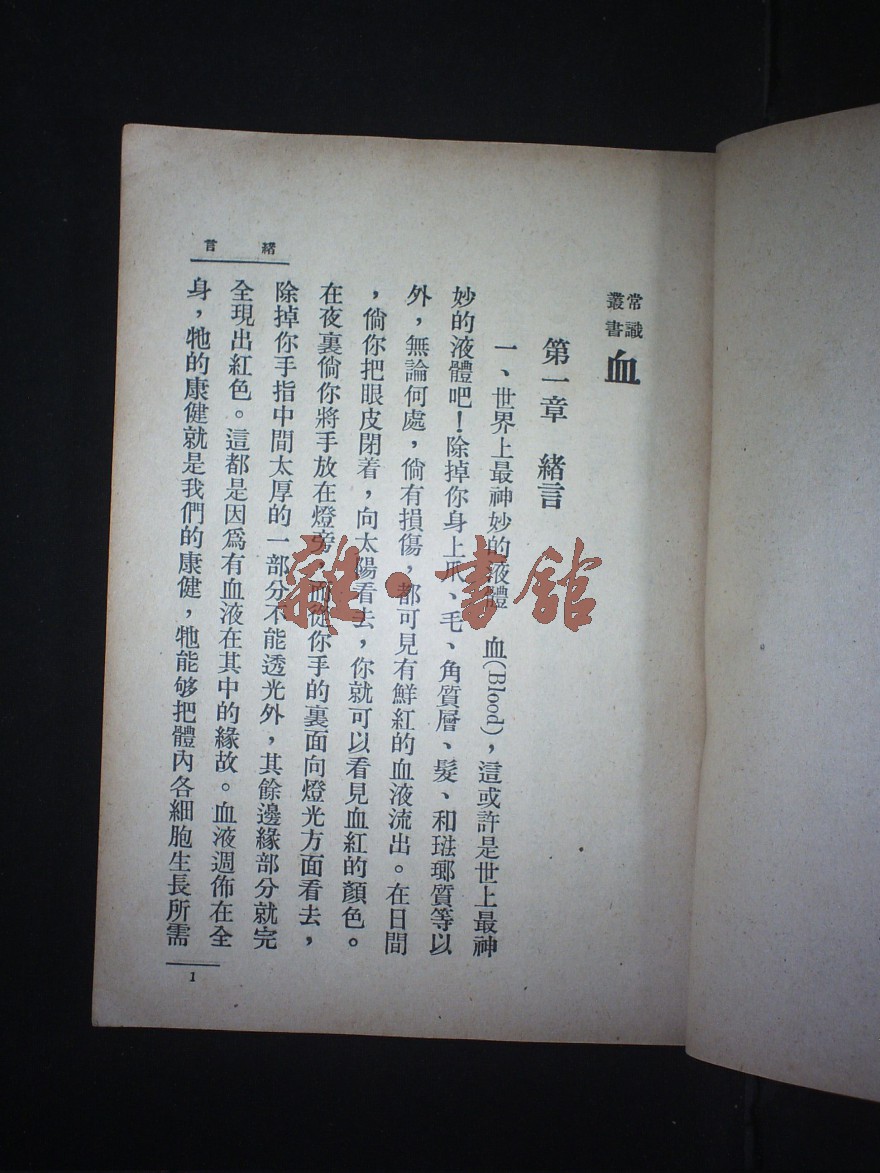 常識
叢書
血
第一章 緒言
一、世界上最神妙的液體 血(Blood)，這或許是世上最神
妙的液體吧！除掉你身上爪、毛、角質層、髮、和琺瑯質等以
外，無論何處，倘有損傷，都可見有鮮紅的血液流出。在日間
，倘你把眼皮閉着，向太陽看去，你就可以看見血紅的顏色。
在夜裏倘你將手放在燈旁，而從你手的裏面向燈光方面看去，
除掉你手指中間太厚的一部分不能透光外，其餘邊緣部分就完
全現出紅色。這都是因爲有血液在其中的緣故。血液週佈在全
身，牠的康健就是我們的康健，牠能够把體內各細胞生長所需
緒言
1
雜·書館